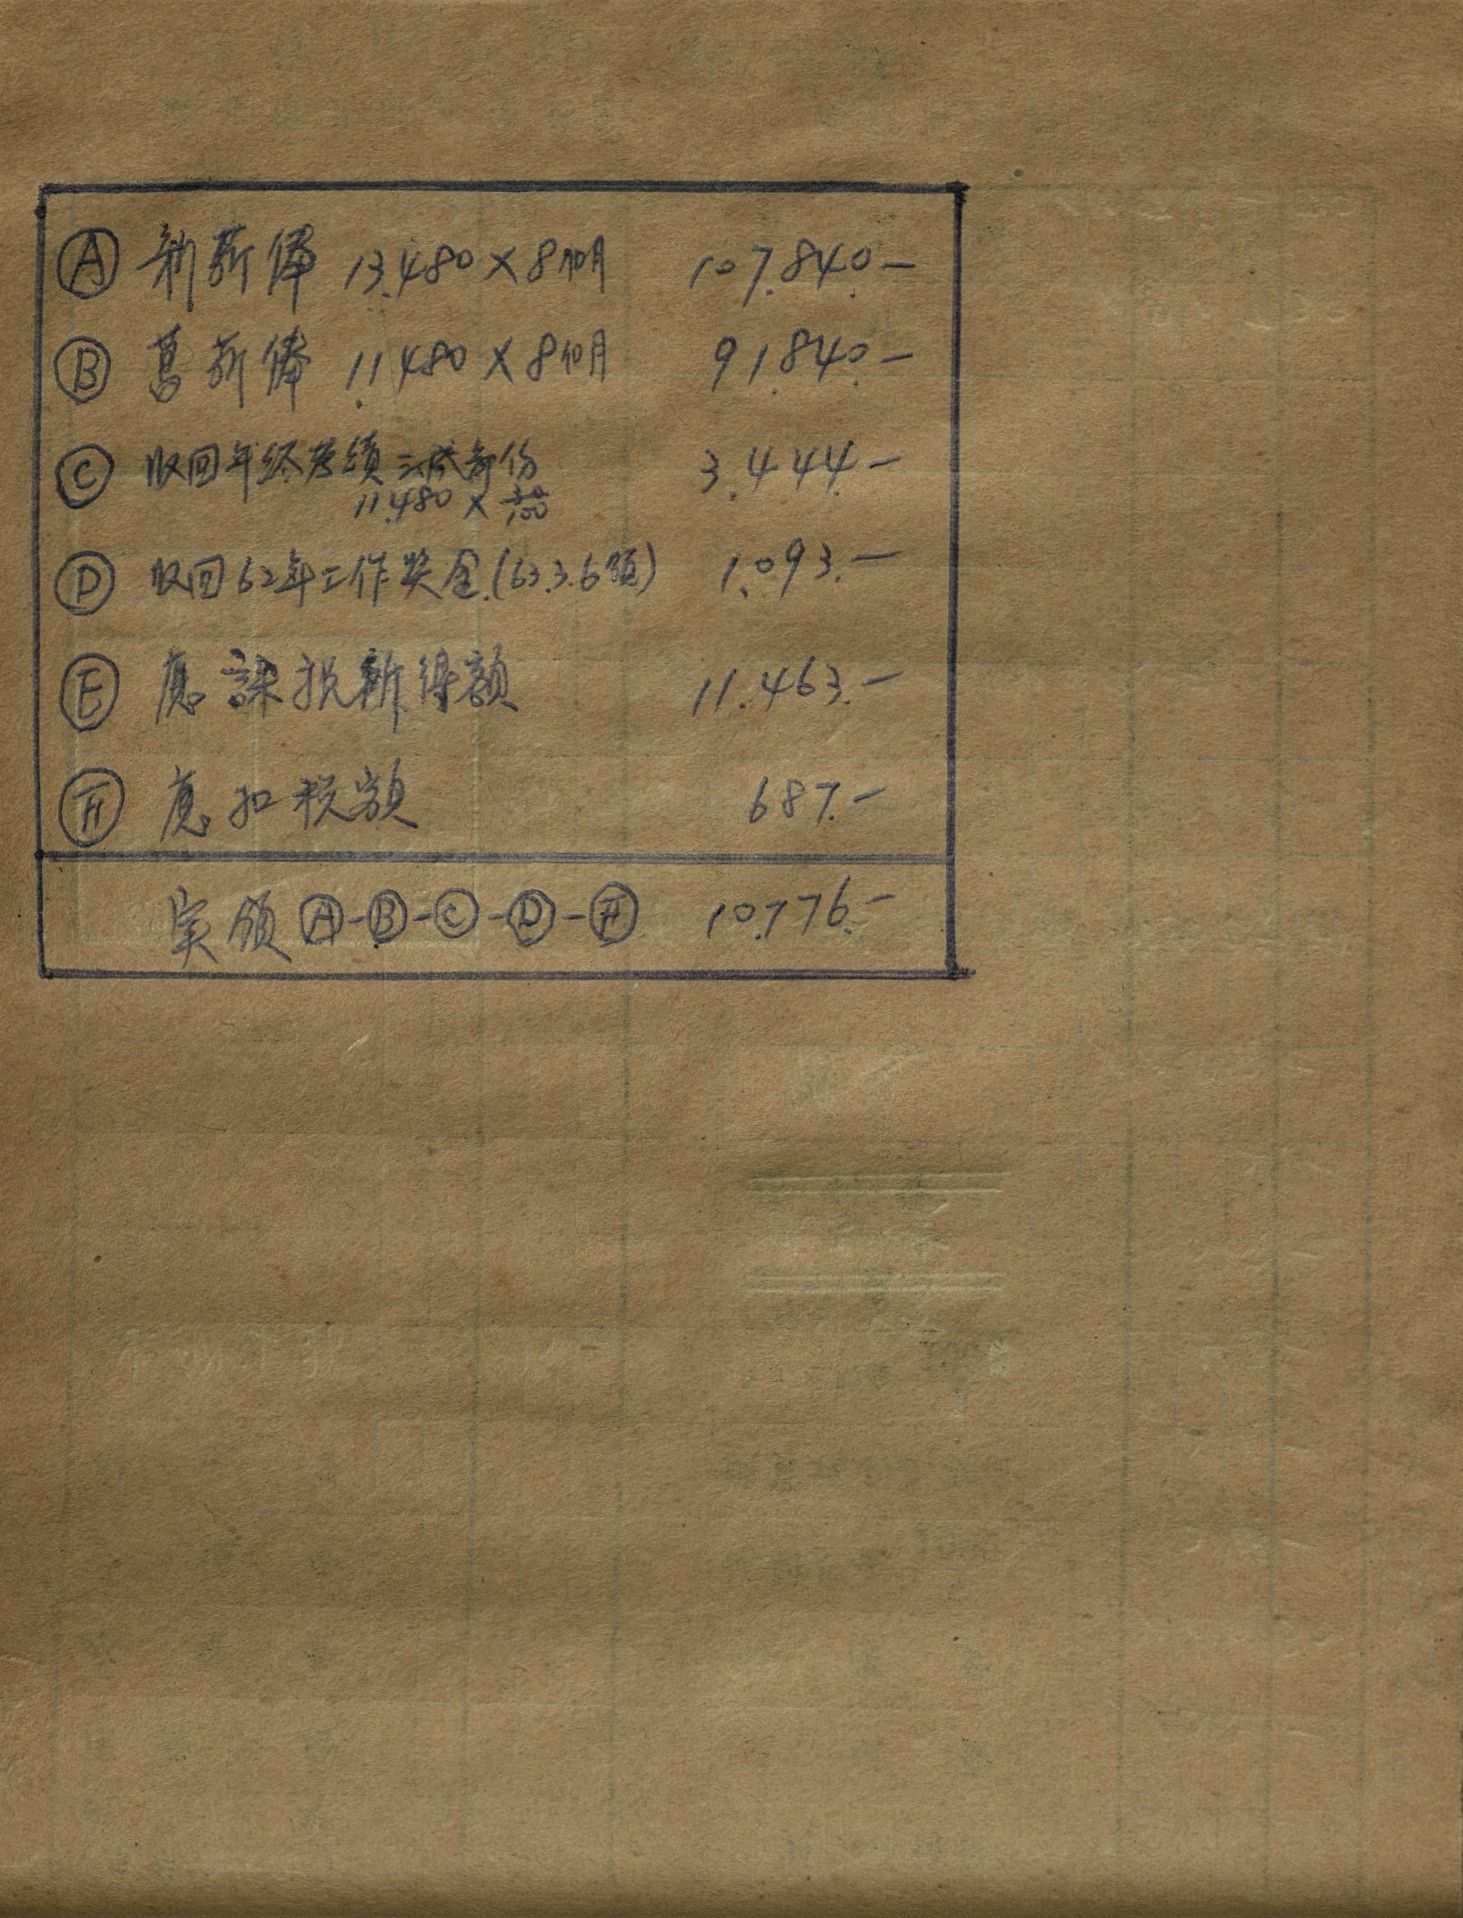 Ⓐ 新薪俸 13.480 × 8個月 107.840.—
Ⓑ 舊薪俸 11.480 × 8個月 91.840.—
Ⓒ 收回年終考績 三成部份 3.444.—
11.480 × 30/100
Ⓓ 收回62年工作奖金(63.3.6領) 1.093.—
Ⓔ 應課税薪得額 11.463.—
Ⓕ 應扣税額 687.—
实領 Ⓐ-Ⓑ-Ⓒ-Ⓓ-Ⓕ 10.776.—